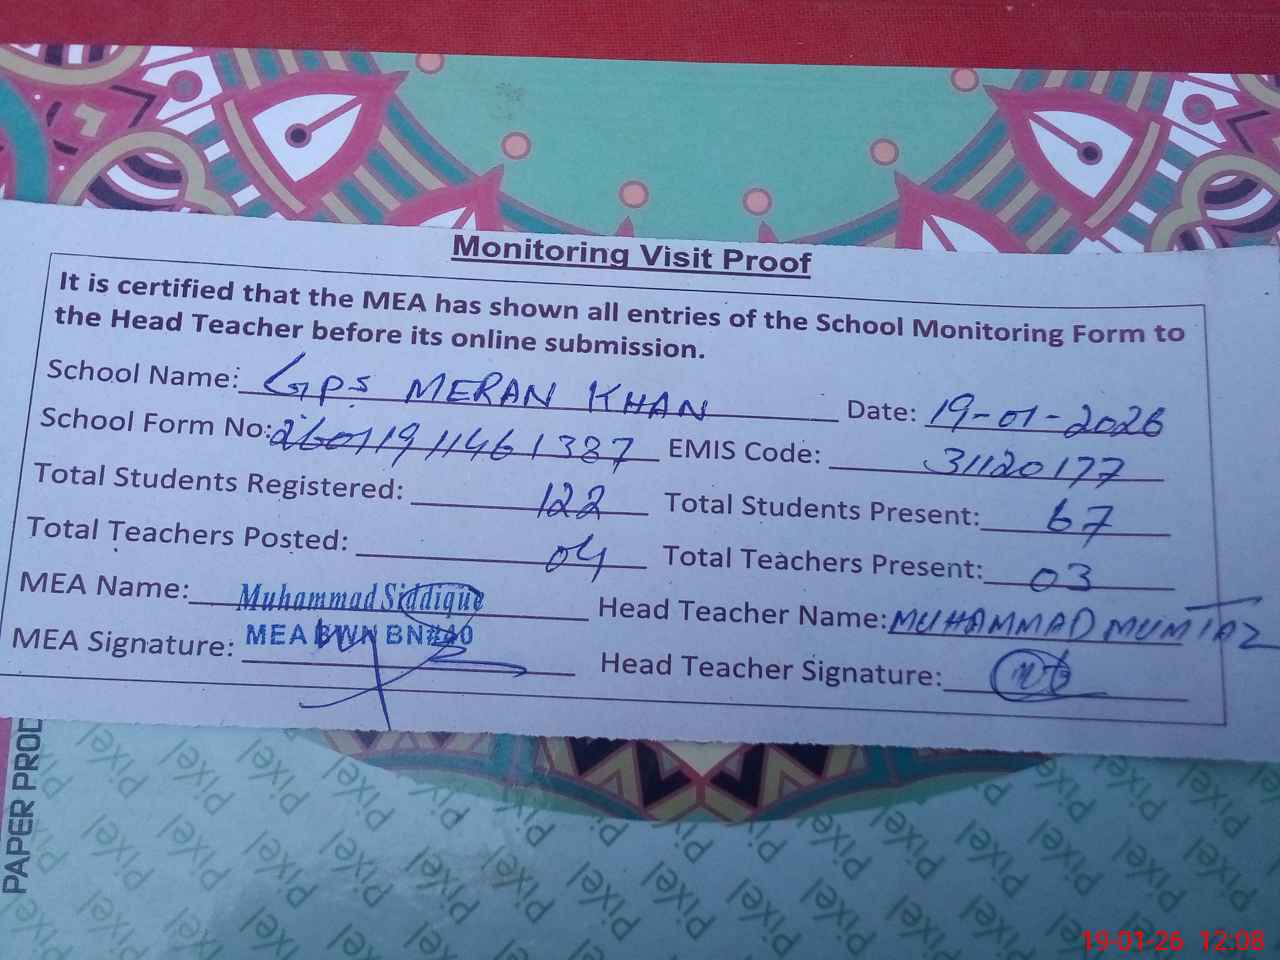 Monitoring Visit Proof
It is certified that the MEA has shown all entries of the School Monitoring Form to
the Head Teacher before its online submission.
School Name: GPS MERAN KHAN Date: 19-01-2026
School Form No: 2601191146 1387 EMIS Code: 31120177
Total Students Registered: 122 Total Students Present: 67
Total Teachers Posted: 04 Total Teachers Present: 03
MEA Name: Muhammad Siddique Head Teacher Name: MUHAMMAD MUMTAZ
MEA BWN BN#40
MEA Signature: Head Teacher Signature:
PAPER PROD
Pixel Pixel Pixel Pixel Pixel Pixel
19-01-26 12:08